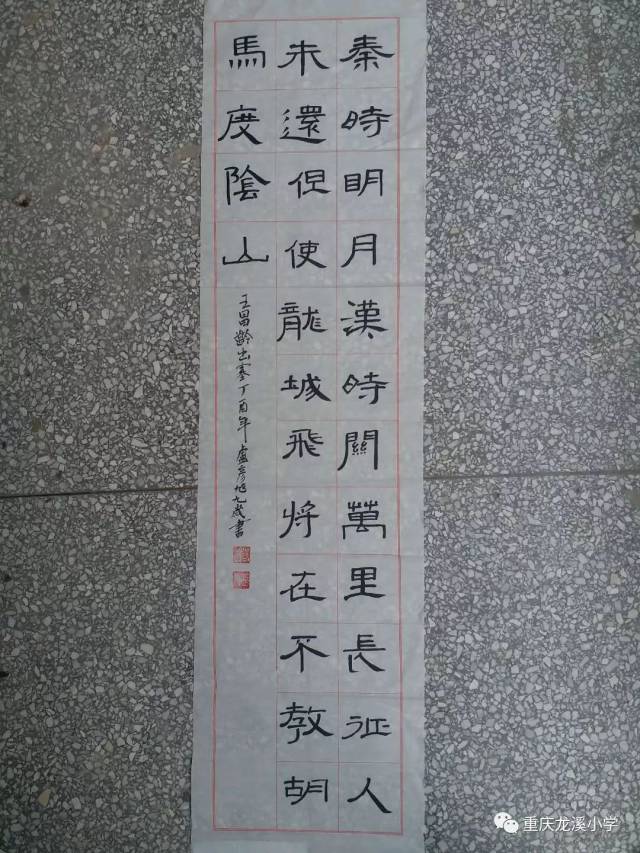 秦時明月漢時關萬里長征人
未還但使龍城飛将在不教胡
馬度陰山
王昌齡出塞丁酉年盧彦旭九歲書
重庆龙溪小学